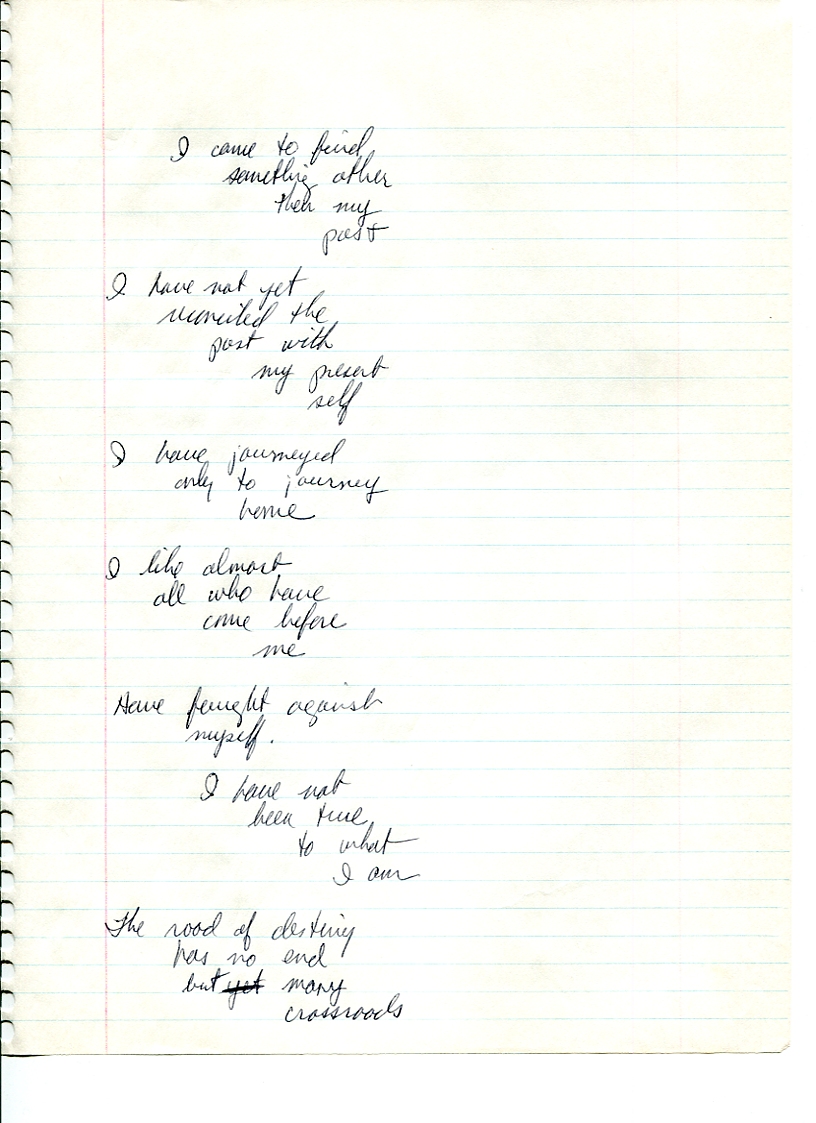 I came to find
something other
then my
past
I have not yet
reconciled the
past with
my present
self
I have journeyed
only to journey
home
I like almost
all who have
come before
me
Have fought against
myself.
I have not
been true
to what
I am
The road of destiny
has no end
but yet many
crossroads